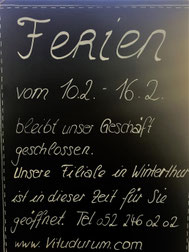 Ferien
vom 10.2. - 16.2.
bleibt unser Geschäft
geschlossen.
Unsere Filiale in Winterthur
ist in dieser Zeit für Sie
geöffnet. Tel 052 246 02 02
www.Vitudurum.com